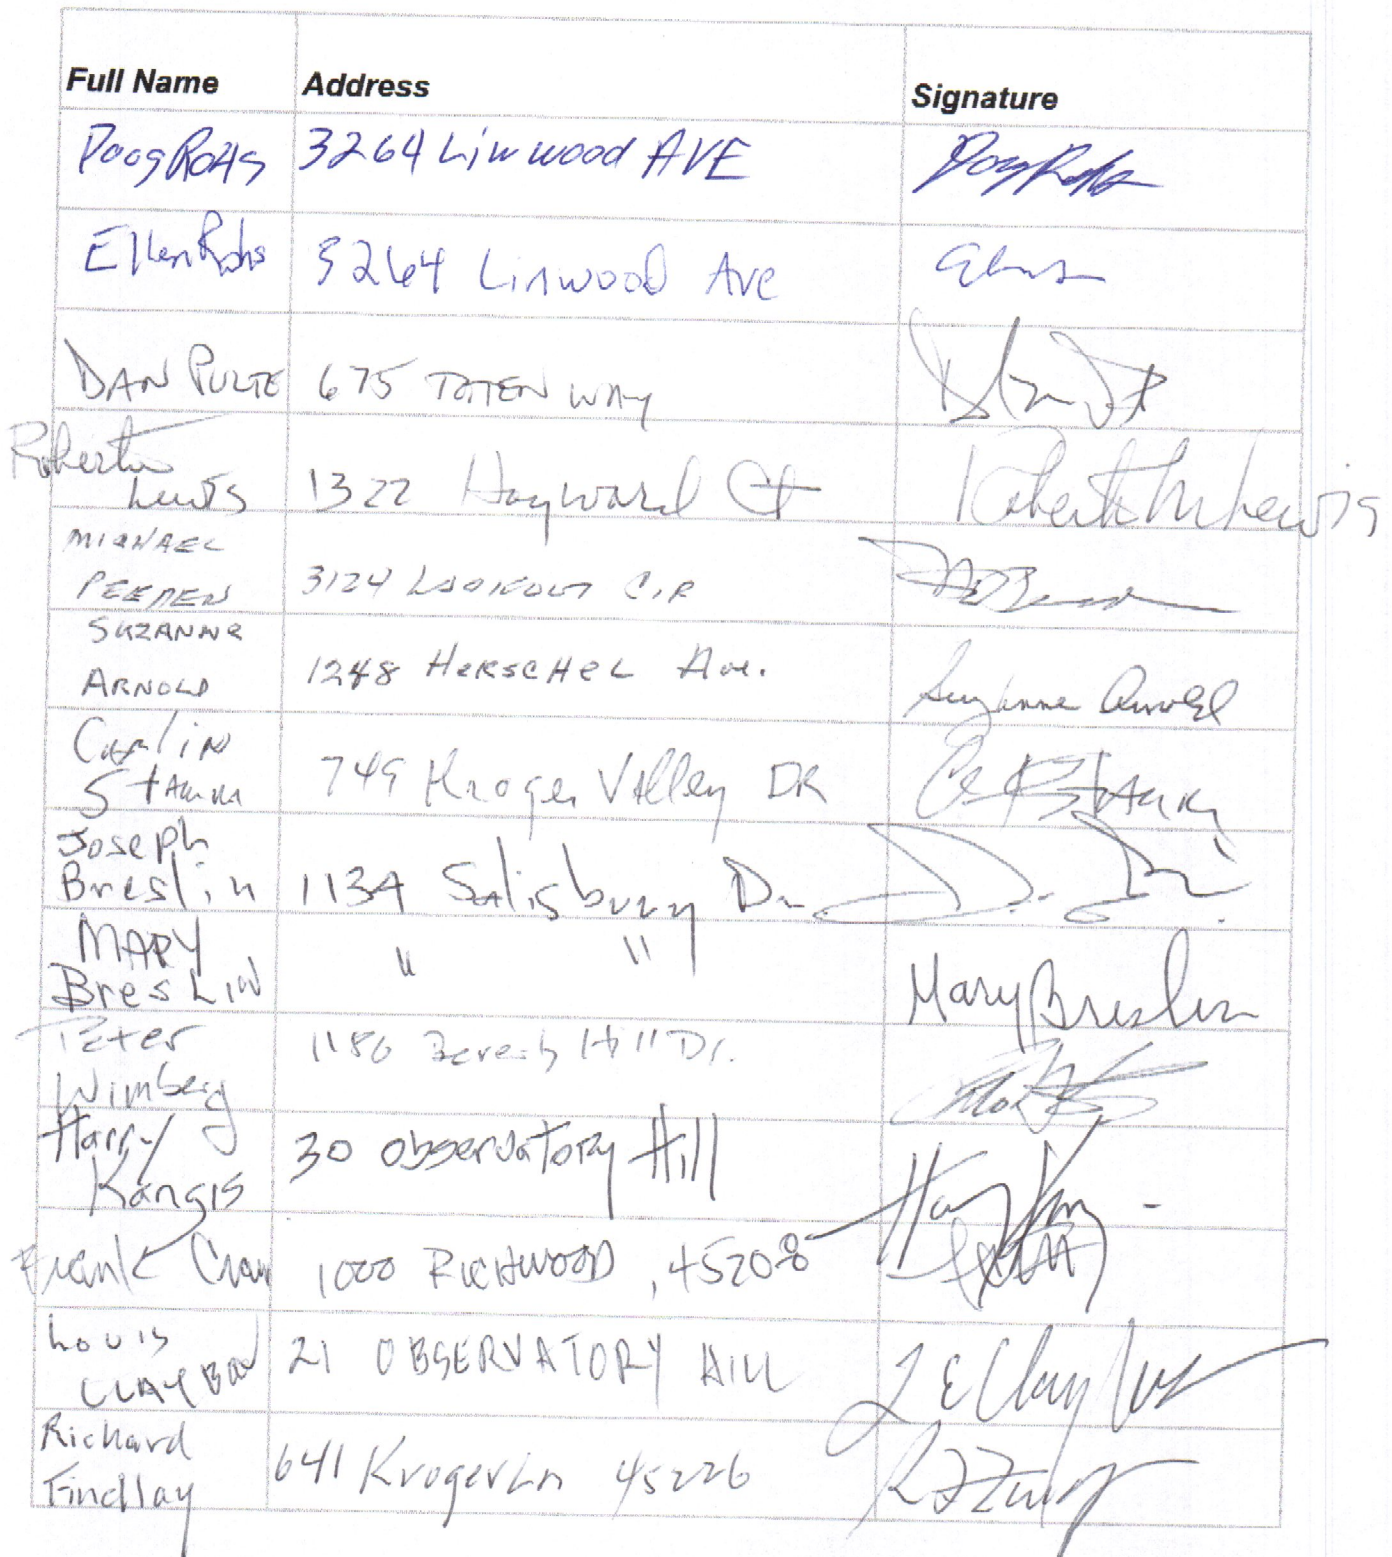 Full Name Address Signature
Doug Rohs 3264 Linwood AVE
Ellen Rohs 3264 Linwood Ave
DAN PULTE 675 TOTEN WAY
Roberta
Lewis 1322 Hayward Ct Roberta M Lewis
MICHAEL
3124 LOOKOUT CIR
SUZANNE
ARNOLD 1248 HERSCHEL Ave. Suzanne Arnold
Carlin
749 Kroger Valley DR
Joseph
Breslin 1134 Salisbury Dr.
MARY
Breslin " " Mary Breslin
Peter
Wimberg 1180 Beverly Hill Dr.
Harry
Kangis 30 Observatory Hill
Frank 1000 RICHWOOD, 45208
Louis
21 OBSERVATORY HILL
Richard
Findlay 641 Kroger Ln 45226